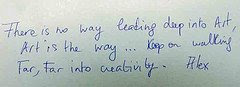 There is no way leading deep into Art,
Art is the way... Keep on walking
Far, Far into creativity. Alex